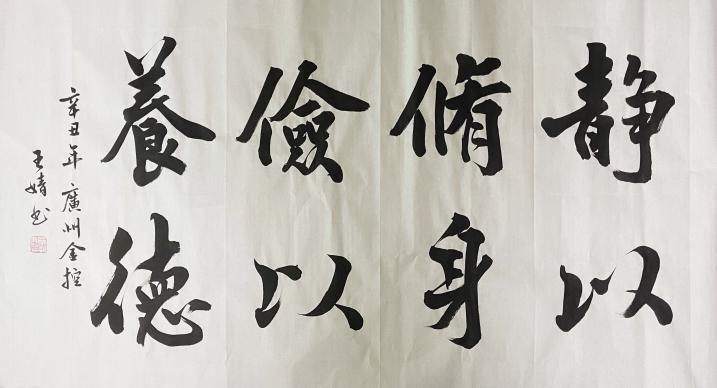 静以
脩身
儉以
養德
辛丑年廣州金控
王婧书